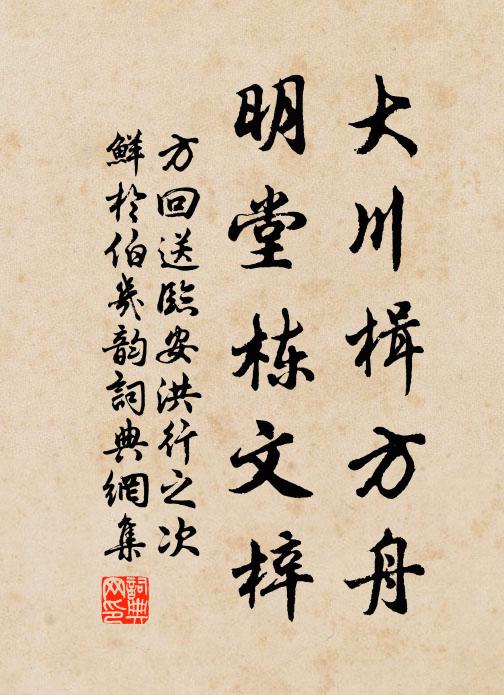 大川楫方舟
明堂栋文梓
方回送臨安洪行之次
鮮於伯幾韵詞典網集
詞典网印